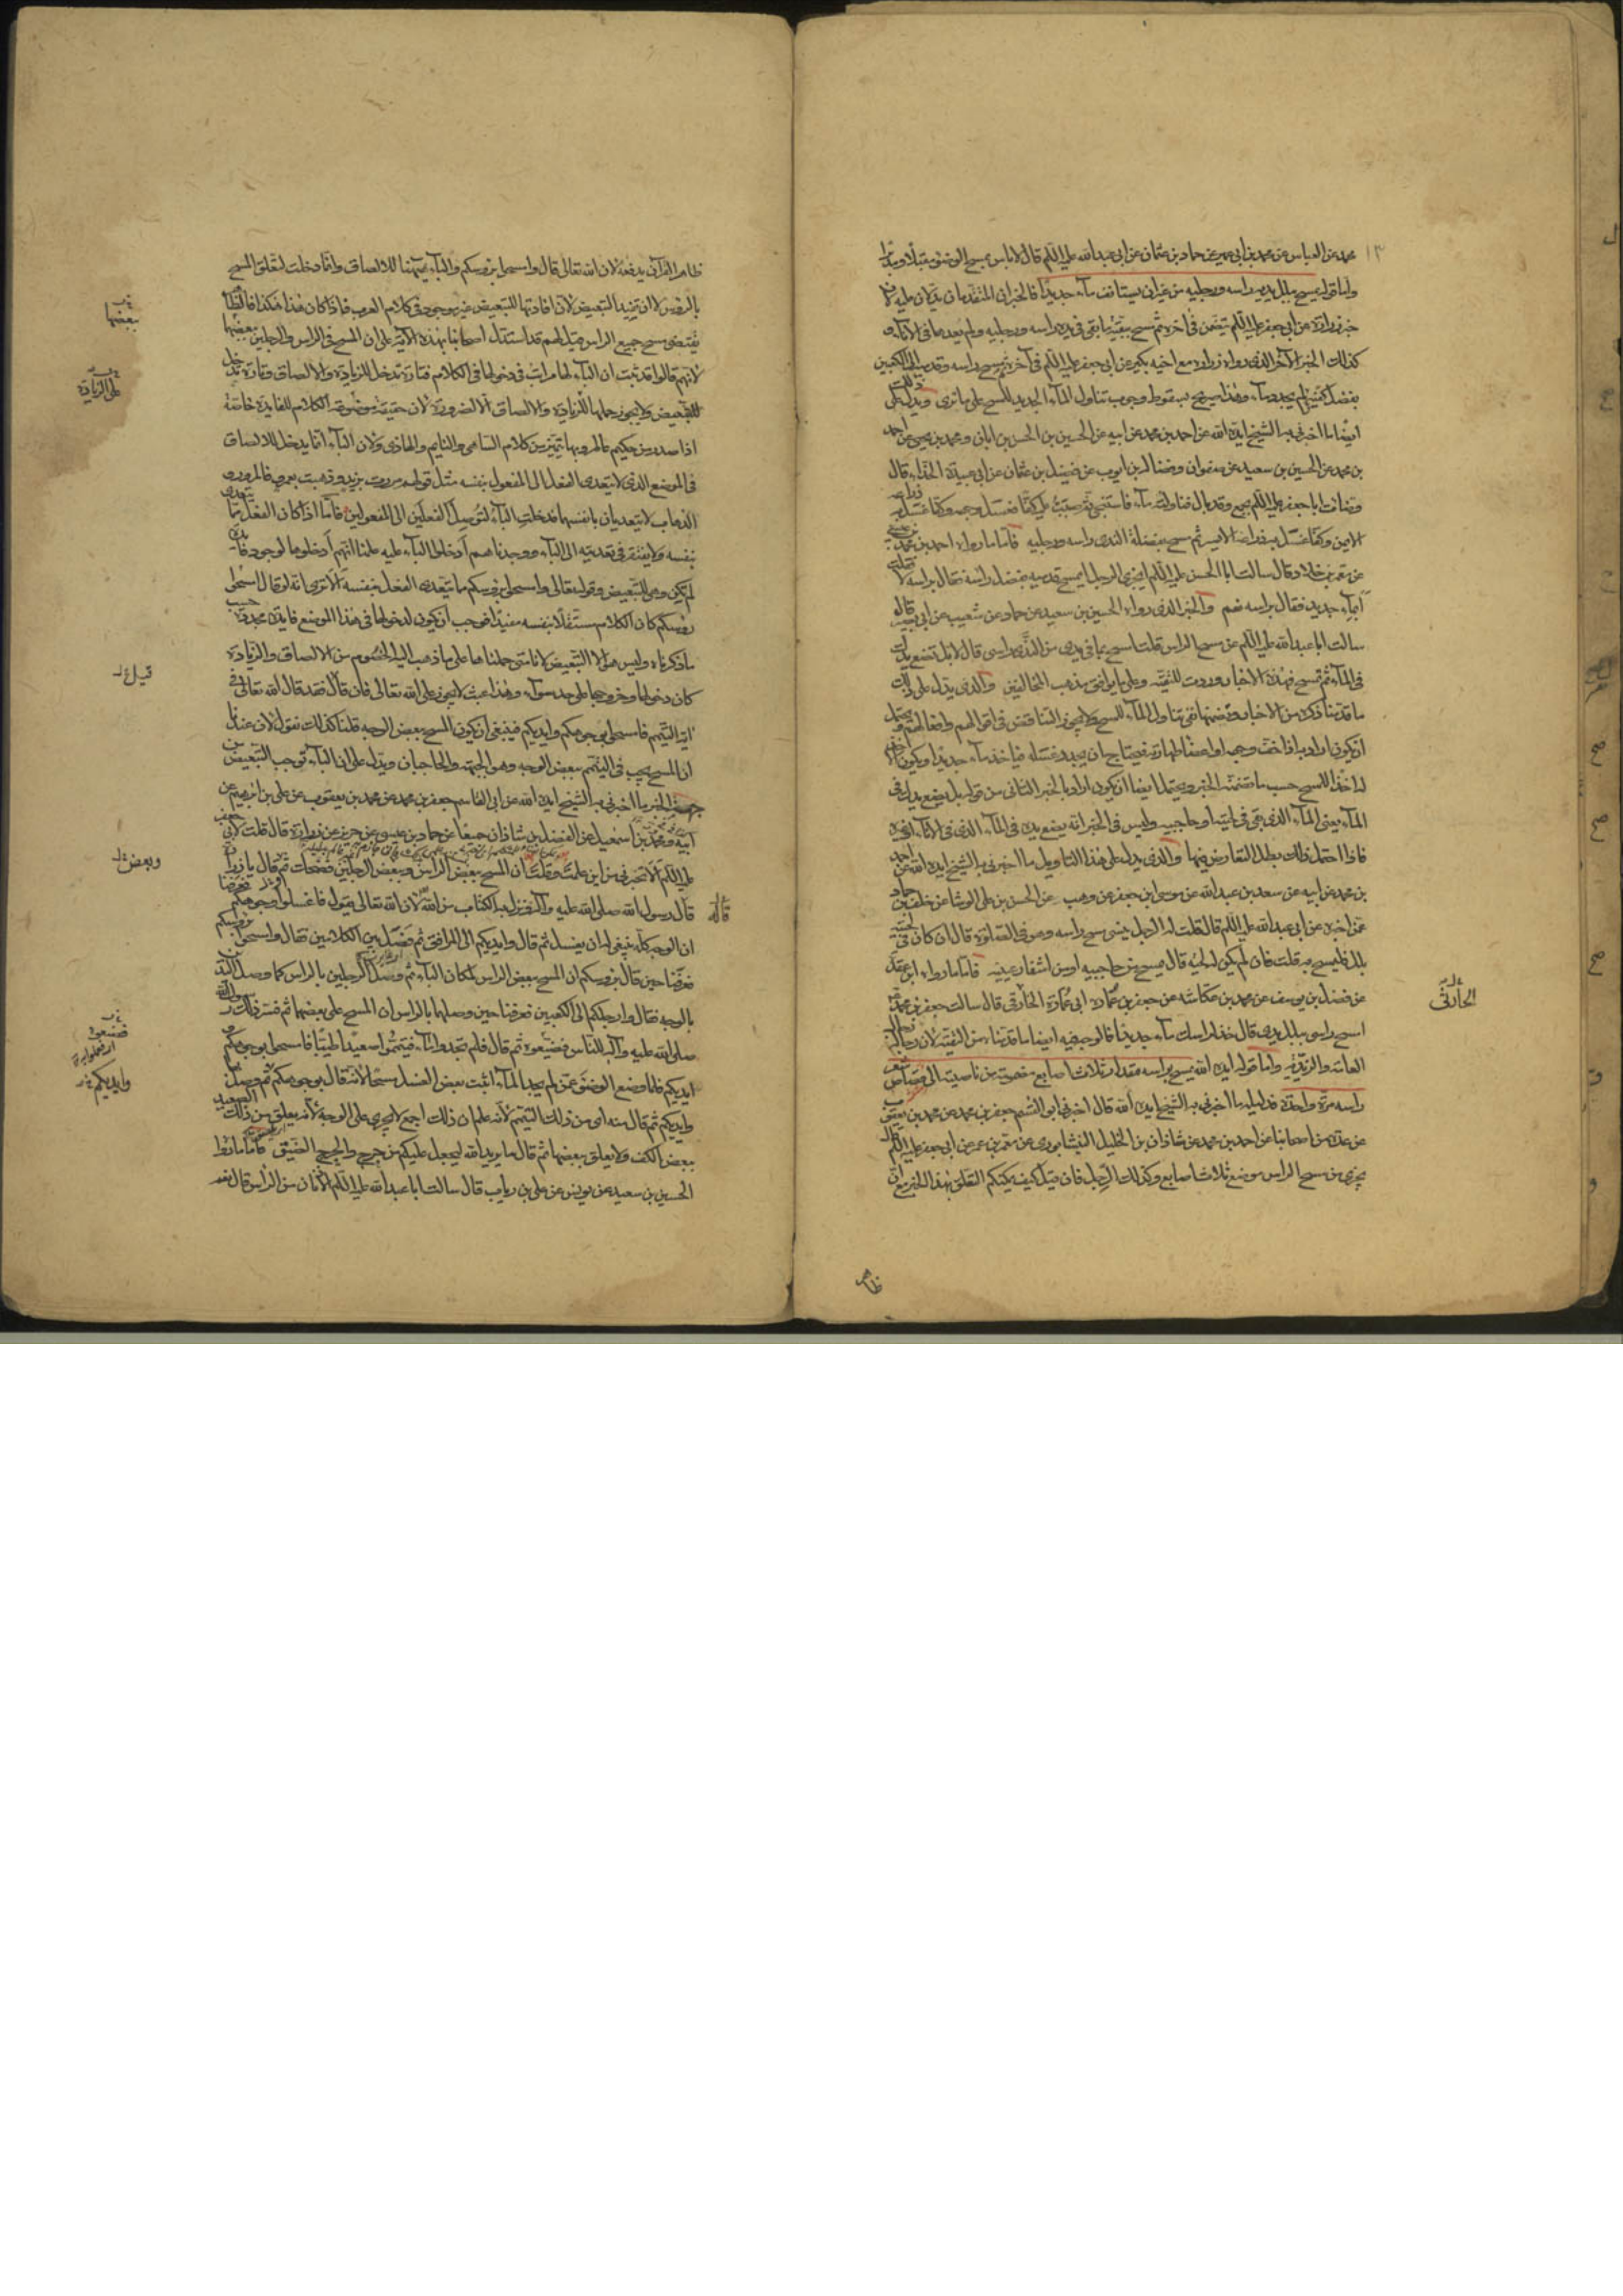 محمد عن العباس عن محمد بن أبي عمير عن حماد بن عثمان عن أبي عبدالله عليه السلم قال لا باس بمسح الوضوء مقبلا ومدبرا
واما قوله يمسح ببلل يديه راسه ورجليه من غير ان يستانف ماء جديدا فالخبران المتقدمان يدلان عليه لان
خبر زرارة عن أبي جعفر عليه السلم يتضمن في اخره ثم مسح ببقية ما بقي في يديه راسه ورجليه ولم يعدهما في الاناء و
كذلك الخبر الآخر الذي رواه زرارة مع اخيه بكير عن أبي جعفر عليه السلم في آخره ثم مسح راسه وقدميه الى الكعبين
بفضل كفيه لم يجدد ماء وهذا صريح بسقوط وجوب تناول الماء الجديد للمسح على ما ترى ويدل على ذلك
ايضا ما اخبرني به الشيخ ايده الله عن احمد بن محمد عن ابيه عن الحسين بن الحسن بن ابان ومحمد بن يحيى عن احمد
بن محمد عن الحسين بن سعيد عن صفوان وفضالة بن ايوب عن فضيل بن عثمان عن ابي عبيدة الحذاء قال
وضات ابا جعفر عليه السلم بجمع وقد بال فناولته ماء فاستنجى ثم صببت عليه كفا فغسل وجهه وكفا غسل به ذراعه
الايمن وكفا غسل به ذراعه الايسر ثم مسح بفضلة الندى راسه ورجليه فاما ما رواه احمد بن محمد بن عيسى
عن معمر بن خلاد قال سالت ابا الحسن عليه السلم ايجزي الرجل ان يمسح قدميه بفضل راسه فقال براسه لا فقلت
ابماء جديد فقال براسه نعم والخبر الذي رواه الحسين بن سعيد عن حماد عن شعيب عن ابي بصير قال
سالت ابا عبدالله عليه السلم عن مسح الراس قلت امسح بما في يدي من الندى راسي قال لا بل تضع يدك
في الماء ثم تمسح فهذه الاخبار وردت للتقية وعلى ما يوافق مذهب المخالفين والذي يدل على ذلك
ما قدمنا ذكره من الاخبار وتضمنها نفي تناول الماء للمسح ولا يجوز التناقض في اقوالهم وافعالهم ويحتمل
ان يكون اراد به اذا خفت وجهه او اعضا طهارته فيحتاج ان يجدد غسله فياخذ ماء جديدا ويكون
لداخذ المسح حسب ما تضمنه الخبر ويحتمل ايضا ان يكون اراد بالخبر الثاني من قوله بل تضع يدك في
الماء يعني الماء الذي بقي في لحيته او حاجبيه وليس في الخبر انه يضع يده في الماء الذي في الاناء او غيره
فاذا احتمل ذلك بطل التعارض فيها والذي يدل على هذا التاويل ما اخبرني به الشيخ ايده الله عن احمد
بن محمد عن ابيه عن سعد بن عبدالله عن موسى بن جعفر عن وهب عن الحسن بن علي الوشا عن خلف بن حماد
عمن اخبره عن أبي عبدالله عليه السلم قال قلت له الرجل ينسى مسح راسه وهو في الصلوة قال ان كان في لحيته
بلل فليمسح به قلت فان لم يكن له لحية قال يمسح من حاجبيه او من اشفار عينيه فاما ما رواه ابن عقدة
عن فضل بن يوسف عن محمد بن عكاشة عن جعفر بن عمارة ابي عمارة الحارثي قال سالت جعفر بن محمد
امسح راسي ببلل يدي قال خذ لراسك ماء جديدا فالوجه فيه ايضا ما قدمناه من التقية لان رجاله رجال
العامة والزيدية واما قوله ايده الله يمسح براسه مقدار ثلاث اصابع مضمومة من ناصيته الى قصاص شعر
راسه مرة واحدة فدليله ما اخبرني به الشيخ ايده الله قال اخبرني ابو القسم جعفر بن محمد عن محمد بن يعقوب
عن عدة من اصحابنا عن احمد بن محمد عن شاذان بن الخليل النيشابوري عن معمر بن عمر عن أبي جعفر عليه السلم قال
يجزي من مسح الراس موضع ثلاث اصابع وكذلك الرجل فان قيل كيف يمكنكم التعلق بهذا الخبر مع ان
ظاهر
الحارثي
ظاهر القرآن يدفعه لان الله تعالى قال وامسحوا برؤسكم والباء ههنا للالصاق وانما دخلت لتعلق المسح
بالرؤس لا ان تفيد التبعيض لان افادتها للتبعيض غير موجود في كلام العرب فاذا كان هذا هكذا فالظاهر
يقتضي مسح جميع الراس قيل لهم قد استدل اصحابنا بهذه الآية على ان المسح في الراس والرجلين ببعضها
لانهم قالوا قد ثبت ان الباء لها مراتب في دخولها في الكلام فتارة تدخل للزيادة والالصاق وتارة تدخل
للتبعيض ولا يجوز حملها على الزيادة والالصاق الا لضرورة لان حقيقة موضوع الكلام للفايدة خاصة
اذا صدر من حكيم عالم وبها يتميز من كلام الساهي والنايم والهاذي ولان الباء انما يدخل للالصاق
في الموضع الذي لا يتعدى الفعل الى المفعول بنفسه مثل قولهم مررت بزيد وذهبت بعمرو فالمرور و
الذهاب لا يتعديان بانفسهما فدخلت الباء لتوصل الفعلين الى المفعولين فاما اذا كان الفعل مما يتعدى
بنفسه ولا يفتقر في تعديته الى الباء ووجدناهم ادخلوا الباء عليه علمنا انهم ادخلوها لوجود فايدة
لم تكن وهي التبعيض وقوله تعالى وامسحوا برؤسكم مما يتعدى الفعل بنفسه الا ترى انه لو قال امسحوا
رؤسكم كان الكلام مستقلا بنفسه مفيدا فوجب ان يكون لدخولها في هذا الموضع فايدة مجددة حسب
ما ذكرناه وليس هو الا التبعيض لانا متى حملناها على ما ذهب اليه الخصوم من الالصاق والزيادة
كان دخولها وخروجها على حد سواء وهذا عبث لا يجوز على الله تعالى فان قال فقد قال الله تعالى في
اية التيمم فامسحوا بوجوهكم وايديكم فينبغي ان يكون المسح ببعض الوجه قلنا كذلك نقول لان عندنا
ان المسح يجب في التيمم ببعض الوجه وهو الجبهة والحاجبان ويدل على ان الباء توجب التبعيض من
جهة الخبر ما اخبرني به الشيخ ايده الله عن ابي القاسم جعفر بن محمد عن محمد بن يعقوب عن علي بن ابرهيم عن
ابيه ومحمد بن اسمعيل عن الفضل بن شاذان جميعا عن حماد بن عيسى عن حريز عن زرارة قال قلت لابي جعفر
عليه السلم الا تخبرني من اين علمت وقلت ان المسح ببعض الراس وببعض الرجلين فضحك ثم قال يا زرارة
قال رسول الله صلى الله عليه وآله ونزل به الكتاب من الله لان الله تعالى يقول فاغسلوا وجوهكم فعرفنا
ان الوجه كله ينبغي له ان يغسل ثم قال وايديكم الى المرافق ثم فصل بين الكلامين فقال وامسحوا برؤسكم
فعرفنا حين قال برؤسكم ان المسح ببعض الراس لمكان الباء ثم وصل الرجلين بالراس كما وصل اليدين
بالوجه فقال وارجلكم الى الكعبين فعرفنا حين وصلها بالراس ان المسح على بعضها ثم فسر ذلك رسول الله
صلى الله عليه وآله للناس فضيعوه ثم قال فلم تجدوا ماء فتيمموا صعيدا طيبا فامسحوا بوجوهكم و
ايديكم فلما وضع الوضوء عمن لم يجد الماء اثبت بعض الغسل مسحا لانه قال بوجوهكم ثم وصل بها
وايديكم ثم قال منه اي من ذلك التيمم لانه علم ان ذلك اجمع لا يجري على الوجه لانه يعلق من ذلك الصعيد
ببعض الكف ولا يعلق ببعضها ثم قال ما يريد الله ليجعل عليكم من حرج والحرج الضيق فاما ما رواه
الحسين بن سعيد عن يونس عن علي بن رياب قال سالت ابا عبدالله عليه السلم الاذنان من الراس قال نعم
ببعضها
على الزيادة
قيل له
وبعض
قاله
فضيعوه
وايديكم